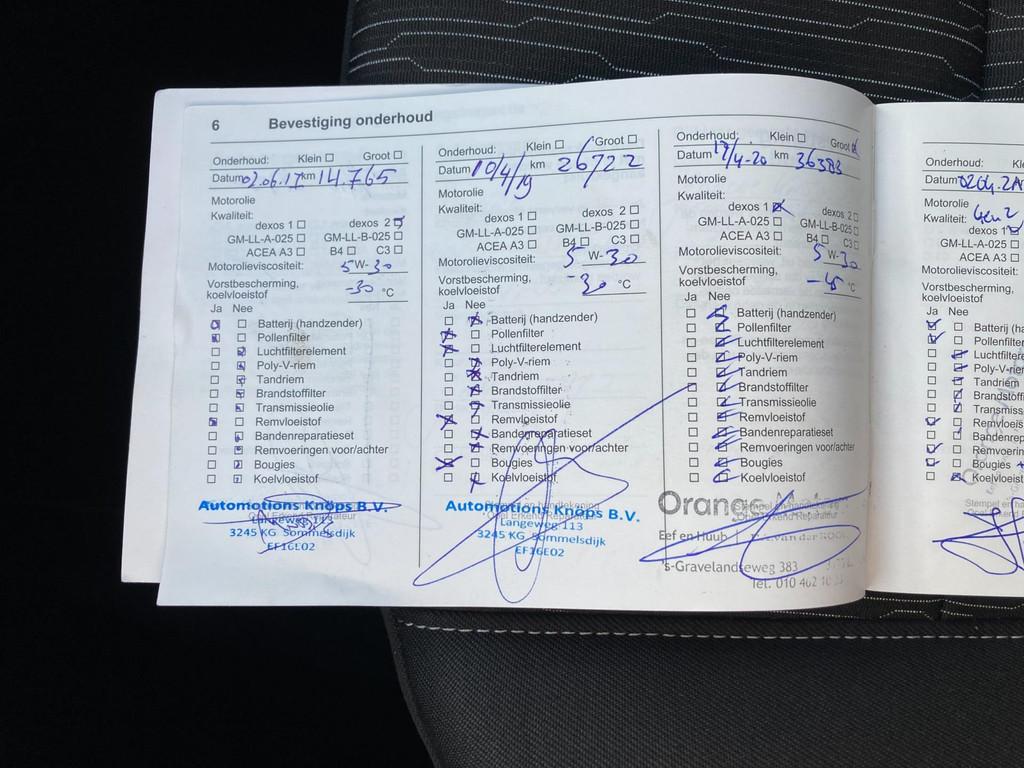 6 Bevestiging onderhoud
Onderhoud: Klein Groot
Datum 02.06.17 km 14.765
Motorolie
Kwaliteit:
dexos 1 dexos 2
GM-LL-A-025 GM-LL-B-025
ACEA A3 B4 C3
Motorolieviscositeit: 5 W-30
Vorstbescherming,
koelvloeistof -30 °C
Ja Nee
Batterij (handzender)
Pollenfilter
Luchtfilterelement
Poly-V-riem
Tandriem
Brandstoffilter
Transmissieolie
Remvloeistof
Bandenreparatieset
Remvoeringen voor/achter
Bougies
Koelvloeistof
Automotions Knöps B.V.
Langeweg 113
3245 KG Sommelsdijk
EF16E02
Onderhoud: Klein Groot
Datum 10/4/19 km 26722
Motorolie
Kwaliteit:
dexos 1 dexos 2
GM-LL-A-025 GM-LL-B-025
ACEA A3 B4 C3
Motorolieviscositeit: 5 W-30
Vorstbescherming,
koelvloeistof -30 °C
Ja Nee
Batterij (handzender)
Pollenfilter
Luchtfilterelement
Poly-V-riem
Tandriem
Brandstoffilter
Transmissieolie
Remvloeistof
Bandenreparatieset
Remvoeringen voor/achter
Bougies
Koelvloeistof
Automotions Knöps B.V.
Langeweg 113
3245 KG Sommelsdijk
EF16E02
Onderhoud: Klein Groot
Datum 17/4-20 km 36383
Motorolie
Kwaliteit:
dexos 1 dexos 2
GM-LL-A-025 GM-LL-B-025
ACEA A3 B4 C3
Motorolieviscositeit: 5 W-30
Vorstbescherming,
koelvloeistof -45 °C
Ja Nee
Batterij (handzender)
Pollenfilter
Luchtfilterelement
Poly-V-riem
Tandriem
Brandstoffilter
Transmissieolie
Remvloeistof
Bandenreparatieset
Remvoeringen voor/achter
Bougies
Koelvloeistof
Orange
Eef en Huub
's-Gravelandseweg 383
Tel. 010 462
Onderhoud:
Datum
Motorolie
Kwaliteit: Gen 2
dexos 1
GM-LL-A-025
ACEA A3
Motorolieviscositeit:
Vorstbescherming,
koelvloeistof
Ja Nee